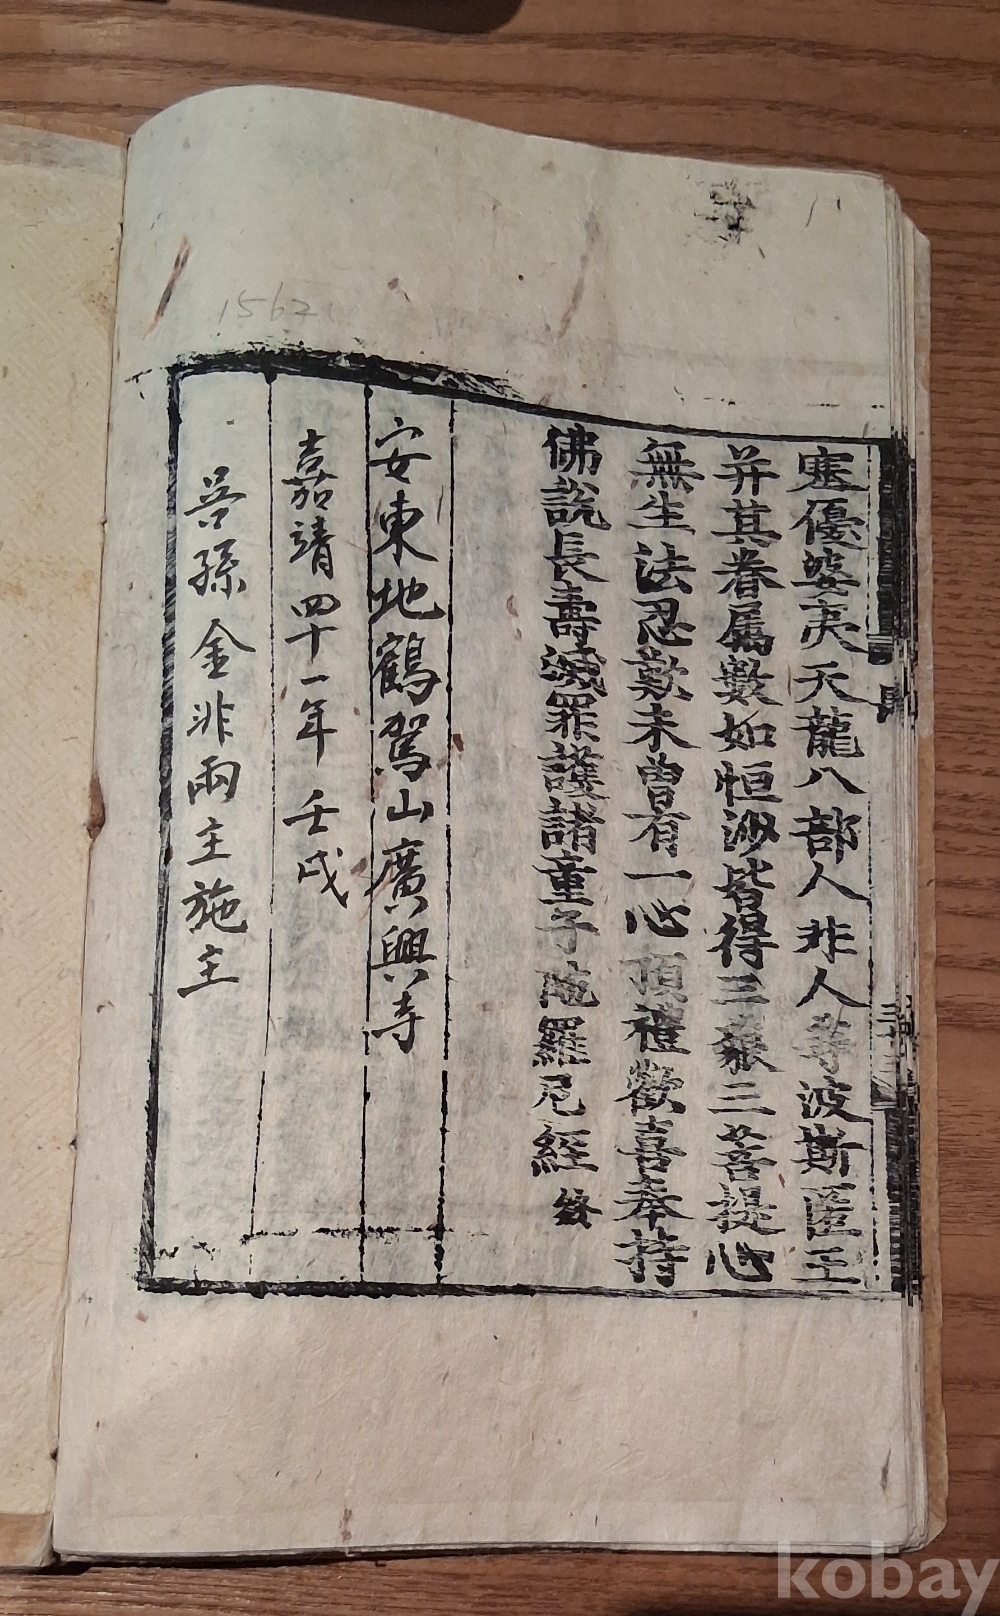 塞優婆夷天龍八部人非人等波斯匿王
并其眷属數如恒沙皆得三藐三菩提心
無生法忍歎未曾有一心頂禮歡喜奉持
佛說長壽滅罪護諸童子陁羅尼經 終
安東地鶴駕山廣興寺
嘉靖四十一年 壬戌
孫金非兩主施主
1562
kobay